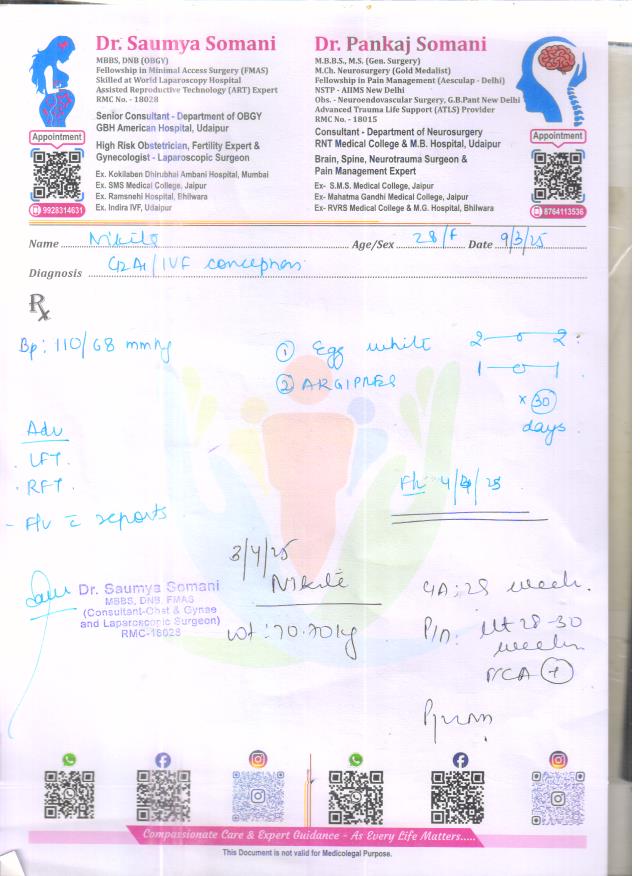 Dr. Saumya Somani
MBBS, DNB (OBGY)
Fellowship in Minimal Access Surgery (FMAS)
Skilled at World Laparoscopy Hospital
Assisted Reproductive Technology (ART) Expert
RMC No. - 18028
Senior Consultant - Department of OBGY
GBH American Hospital, Udaipur
High Risk Obstetrician, Fertility Expert &
Gynecologist - Laparoscopic Surgeon
Ex. Kokilaben Dhirubhai Ambani Hospital, Mumbai
Ex. SMS Medical College, Jaipur
Ex. Ramsnehi Hospital, Bhilwara
Ex. Indira IVF, Udaipur
Appointment
9928314631
Dr. Pankaj Somani
M.B.B.S., M.S. (Gen. Surgery)
M.Ch. Neurosurgery (Gold Medalist)
Fellowship in Pain Management (Aesculap - Delhi)
NSTP - AIIMS New Delhi
Obs. - Neuroendovascular Surgery, G.B.Pant New Delhi
Advanced Trauma Life Support (ATLS) Provider
RMC No. - 18015
Consultant - Department of Neurosurgery
RNT Medical College & M.B. Hospital, Udaipur
Brain, Spine, Neurotrauma Surgeon &
Pain Management Expert
Ex- S.M.S. Medical College, Jaipur
Ex- Mahatma Gandhi Medical College, Jaipur
Ex- RVRS Medical College & M.G. Hospital, Bhilwara
Appointment
8764113536
Name Nikita Age/Sex 28/F Date 9/3/25
Diagnosis G2A1/IVF conception
Rx
Bp: 110/68 mmHg
① Egg white 2-0-2
② ARGIPREG 1-0-1
x 30
days
Adv
. LFT.
. RFT.
- F/u c̄ reports
F/u 4/4/25
3/4/25
Nikita
wt: 70.70kg
GA: 28 week.
P/A: Ut 28-30
weeks
FCA +
Dr. Saumya Somani
MBBS, DNB, FMAS
(Consultant-Obst & Gynae
and Laparoscopic Surgeon)
RMC-18028
Compassionate Care & Expert Guidance - As Every Life Matters.....
This Document is not valid for Medicolegal Purpose.